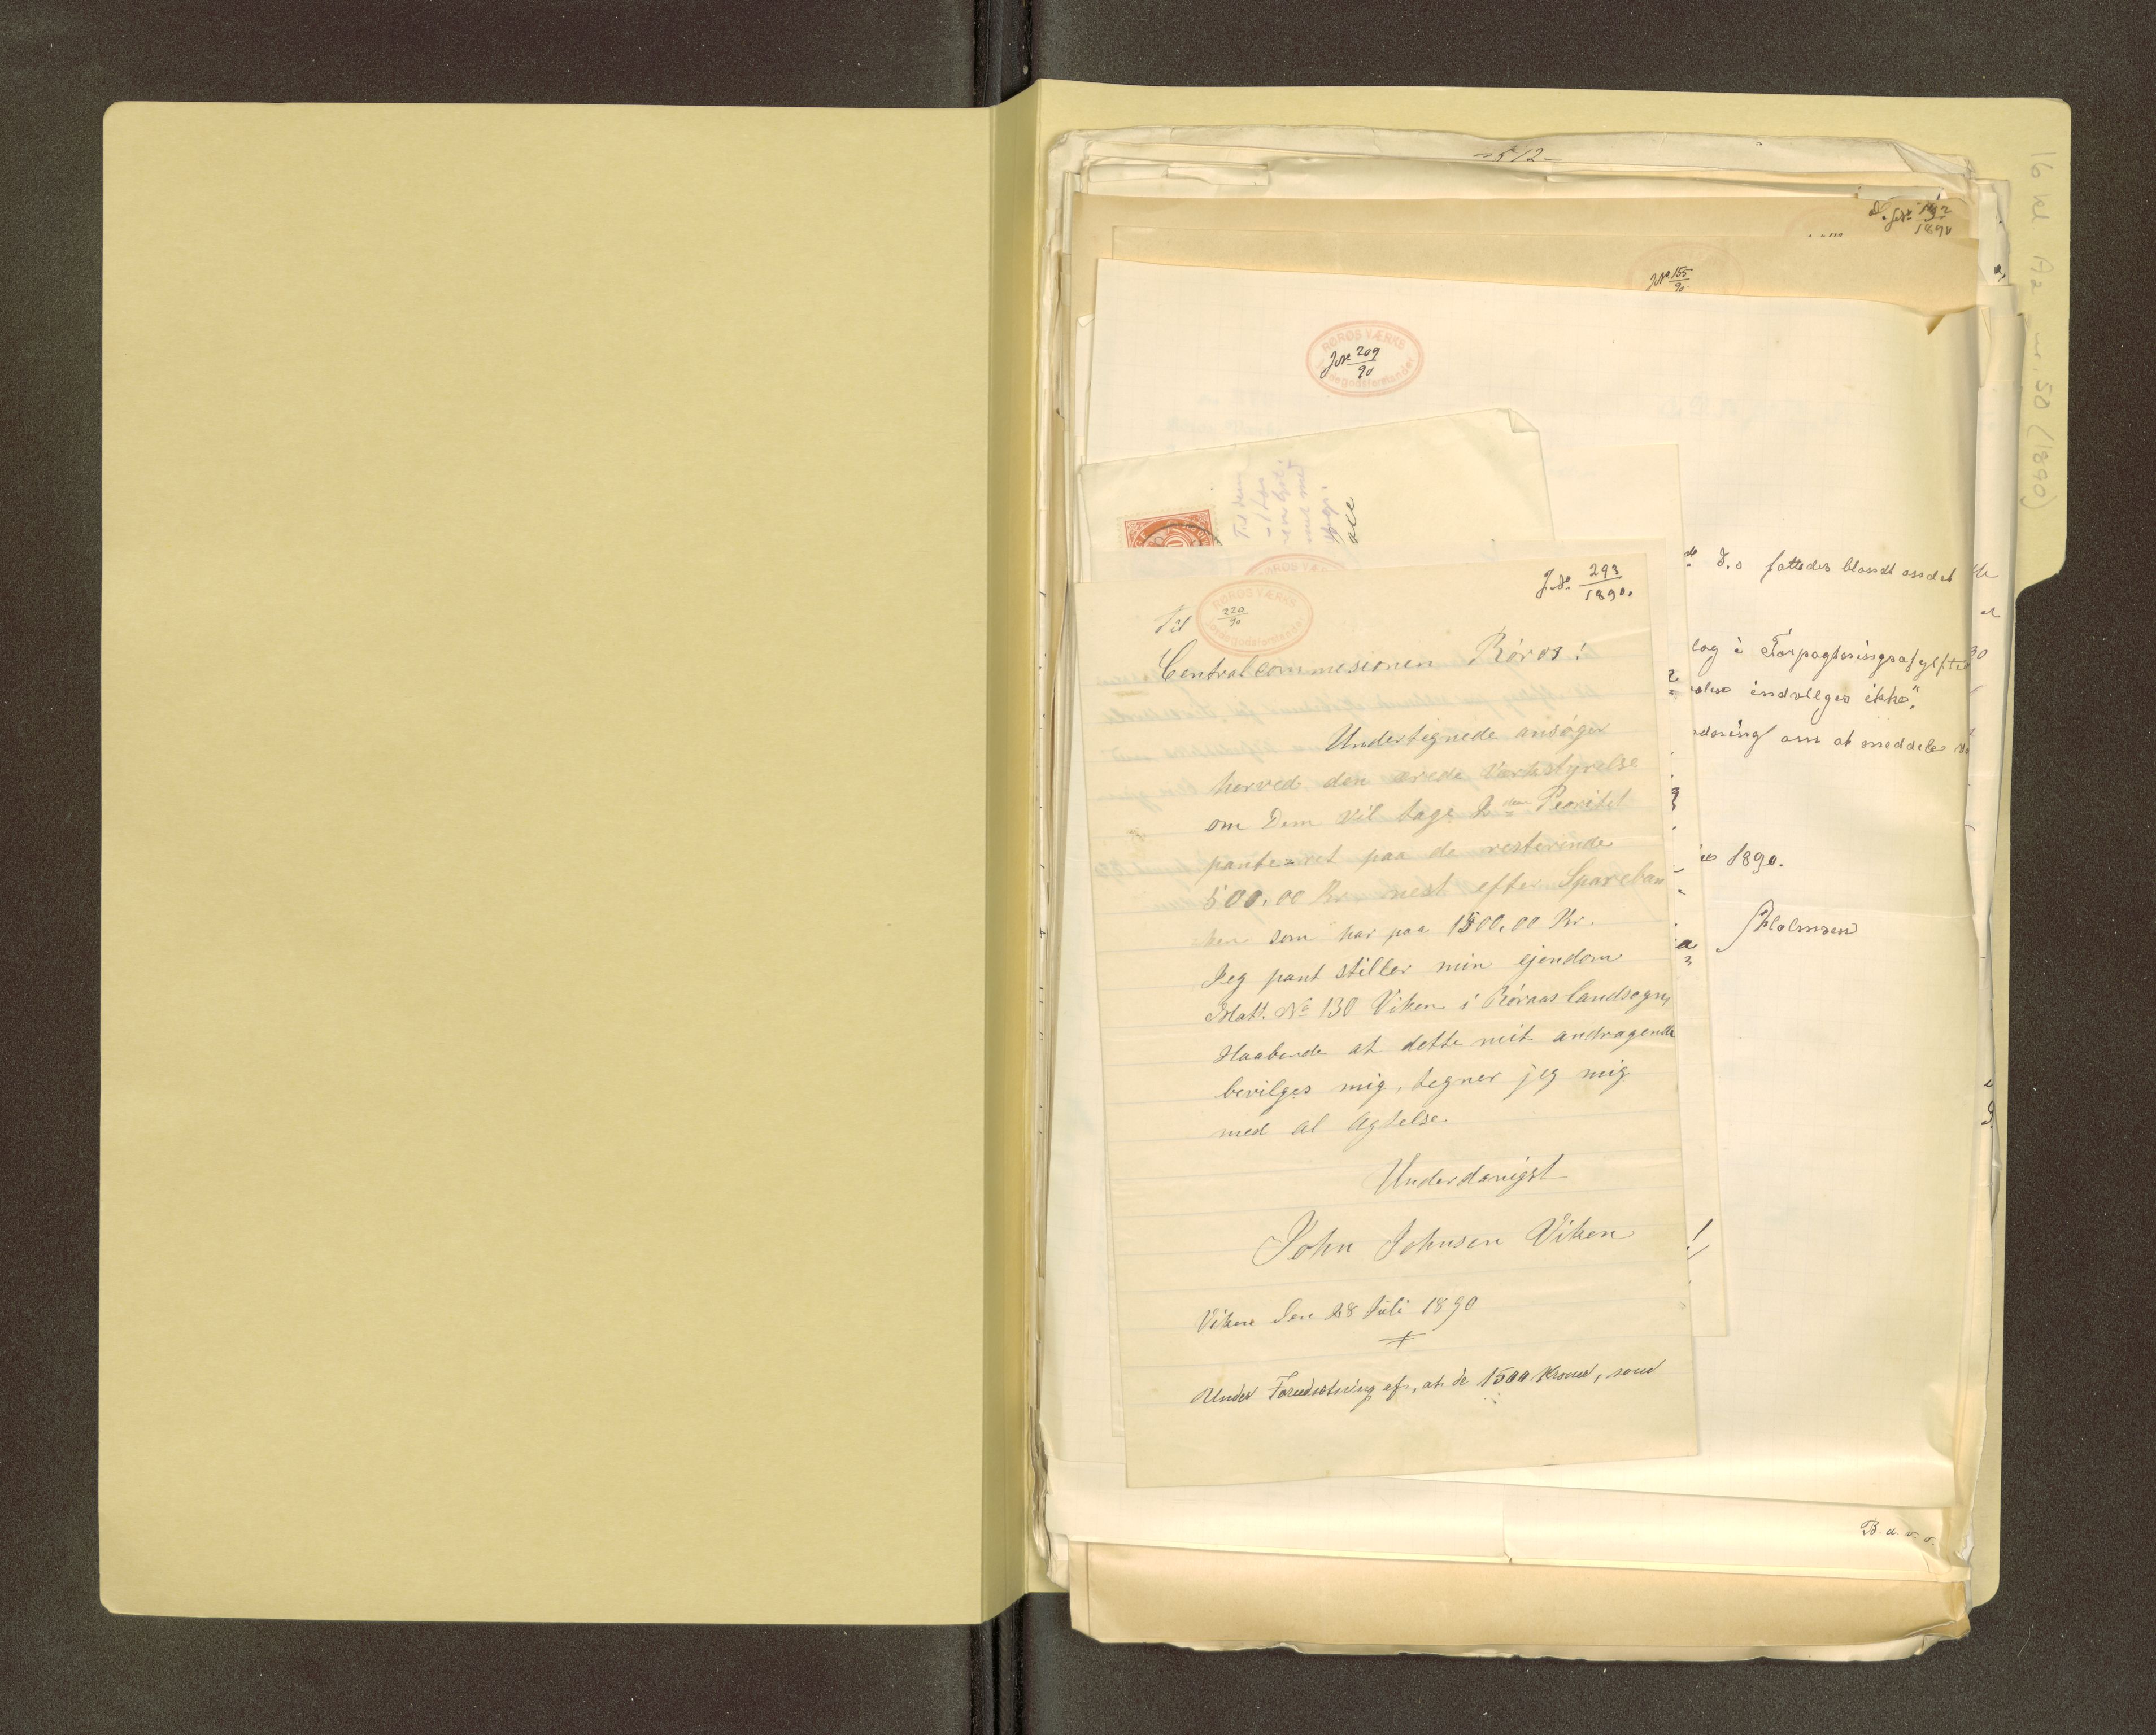 -512-
J.No 192
1890
JNo 155
90
RØROS VÆRKS
JNo 209
90
J.No. 293
1890.
RØROS VÆRKS
220
90
Til
Centralcommesionen Røros!
Undertegnede ansøger
herved den ærede Værkstyrelse
om Dem vil tage 2den Peoritet
pante=ret paa de resterinde
500.00 Kr. nest efter Spareban
ken som har paa 1500.00 Kr.
Jeg pant stiller min ejendom
Matr. No 130 Viken i Røraas landsogn,
Haabende at dette mit andragende
bevilges mig, tegner jeg mig
med al Agtelse.
Underdanigst
John Johnsen Viken
Viken Den 28 Juli 1890
Under Forudsætning af, at de 1500 Kroner, som
J.o fattedes blandt andet
lag i Forpagtningsafgifte
indvilges ikke".
om at meddele
1890.
Holmsen
B. d. v. s.
16 kl A2 nr. 50 (1890)